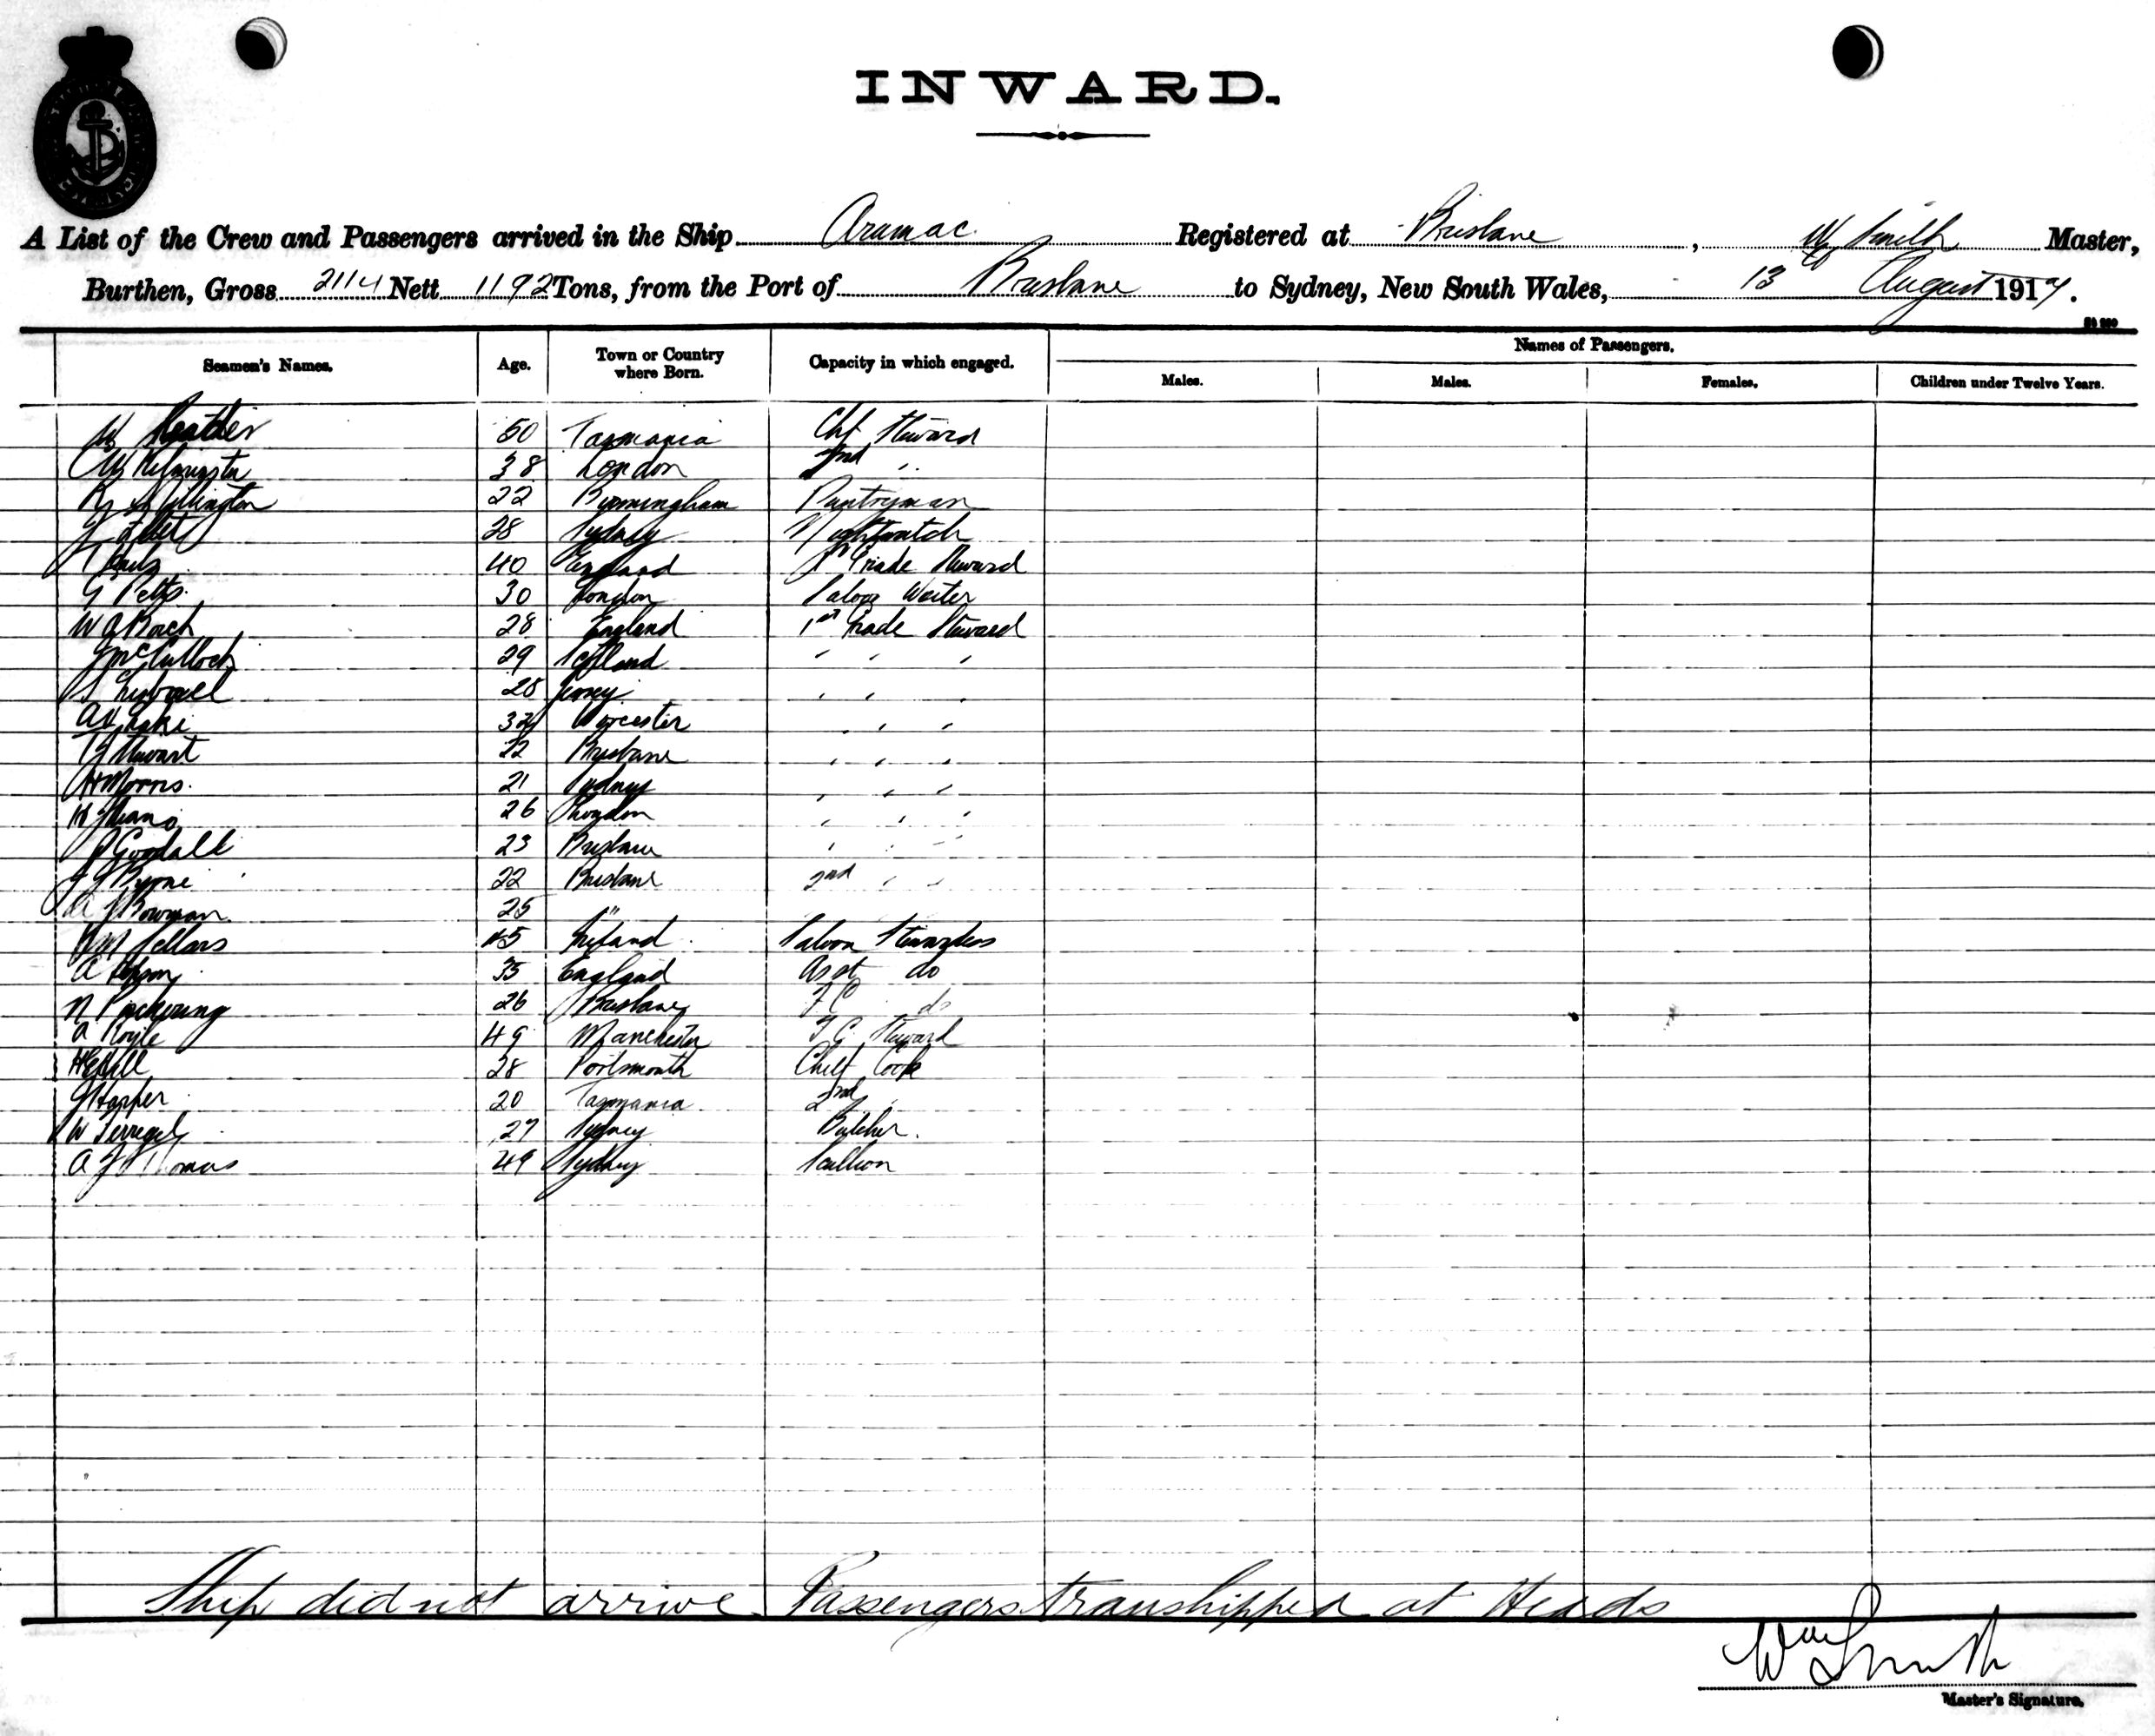 INWARD.
A List of the Crew and Passengers arrived in the Ship Aramac Registered at Brisbane, W Smith Master,
Burthen, Gross 2114 Nett 1192 Tons, from the Port of Brisbane to Sydney, New South Wales, 13 August 1917.
Seamen's Names. Age. Town or Country where Born. Capacity in which engaged. Names of Passengers.
Males. Males. Females. Children under Twelve Years.
W 50 Tasmania Chf Steward
38 London 2nd "
22 Birmingham Pantryman
28 Sydney Nightwatch
40 England Steward
G Petts 30 London Saloon Waiter
W 28 England 1st Grade Steward
J McCulloch 29 Scotland " " "
28 Jersey " " "
32 Worcester " " "
Stewart 22 Brisbane " " "
H Morris 21 Sydney " " "
26 Croydon " " "
Goodall 23 Brisbane " " "
Byrne 22 Brisbane 2nd " "
A J Bowman 25 "
Sellars 45 Ireland Saloon Stewardess
A 35 England Asst do
N Pickering 26 Brisbane F C do
A Royle 49 Manchester F C Steward
28 Portsmouth Chief Cook
J Harper 20 Tasmania 2nd "
W 27 Sydney Butcher.
A J Thomas 49 Sydney Scullion
Ship did not arrive Passengers transhipped at Heads
Wm Smith
Master's Signature.